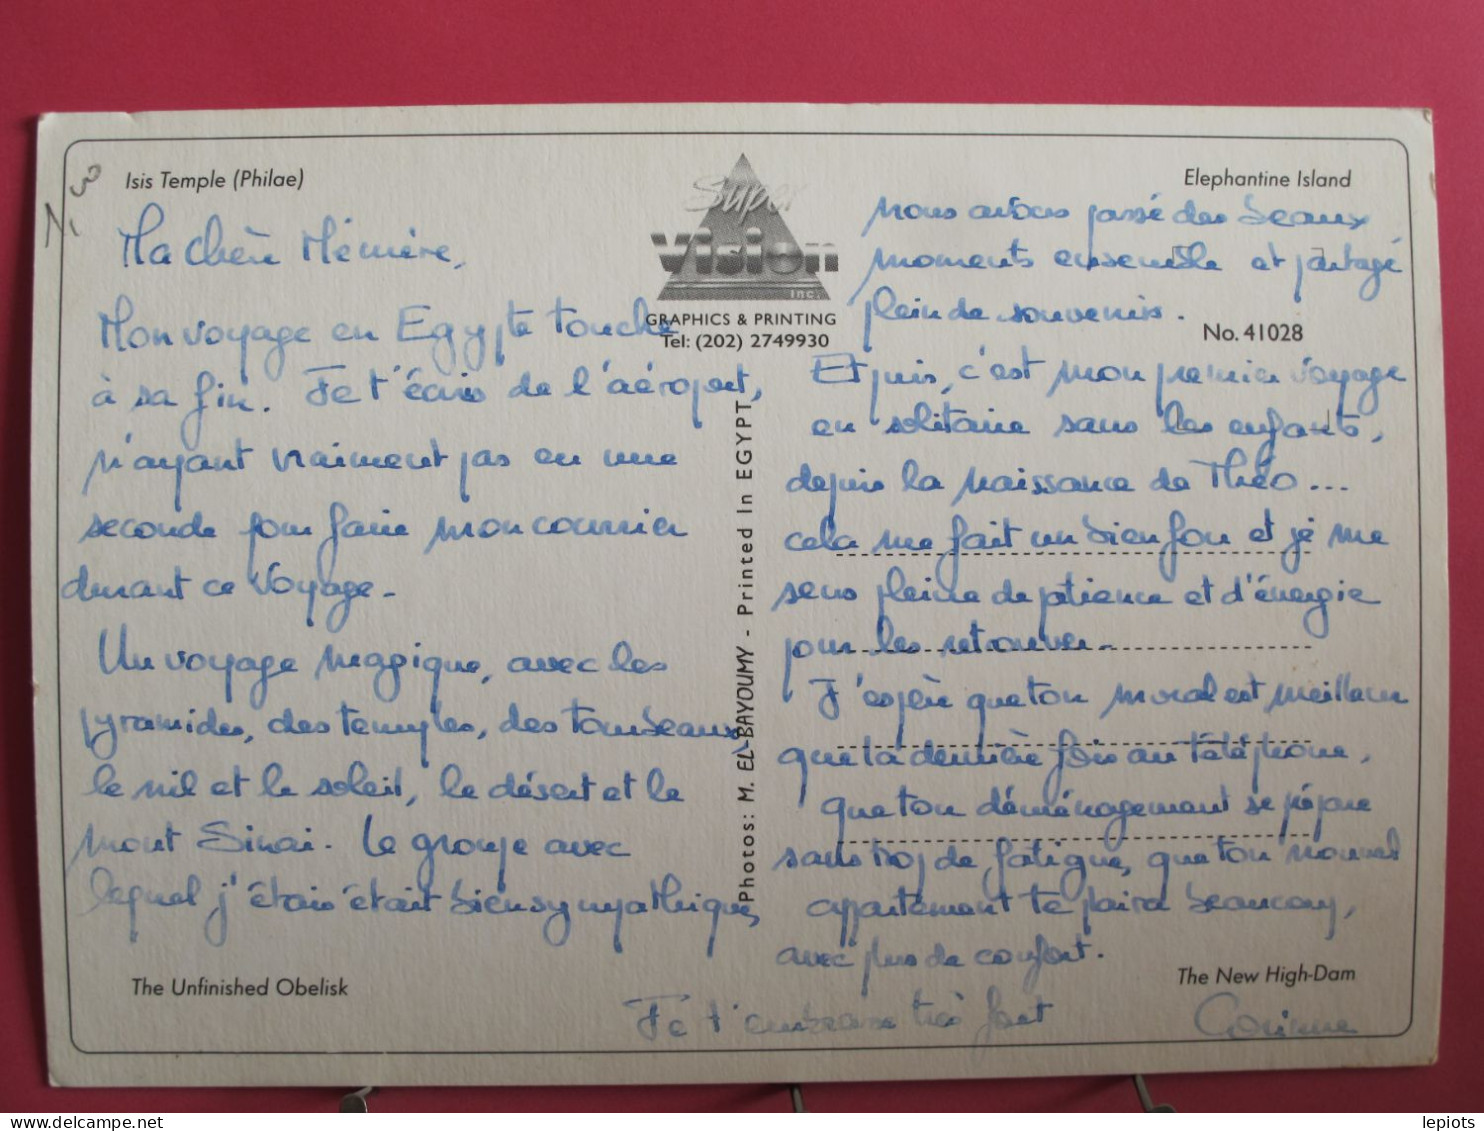 N. 3
Isis Temple (Philae)
Ma chère Mémère,
Mon voyage en Egypte touche
à sa fin. Je t'écris de l'aéroport,
n'ayant vraiment pas eu une
seconde pour faire mon courrier
durant ce voyage.
Un voyage magique, avec les
pyramides, des temples, des tombeaux,
le nil et le soleil, le désert et le
mont Sinai. Le groupe avec
lequel j'étais était bien sympathique,
The Unfinished Obelisk
Super
Vision
inc.
GRAPHICS & PRINTING
Tel: (202) 2749930
Photos: M. EL-BAYOUMY - Printed In EGYPT
Elephantine Island
nous avons passé des beaux
moments ensemble et partagé
plein de souvenirs.
No. 41028
Et puis, c'est mon premier voyage
en solitaire sans les enfants,
depuis la naissance de Théo...
cela me fait un bien fou et je me
sens pleine de patience et d'énergie
pour les retrouver.
J'espère que ton moral est meilleur
que la dernière fois au téléphone,
que ton déménagement se prépare
sans trop de fatigue, que ton nouvel
appartement te plaira beaucoup,
avec plus de confort.
The New High-Dam
Je t'embrasse très fort
Corinne
lepiots